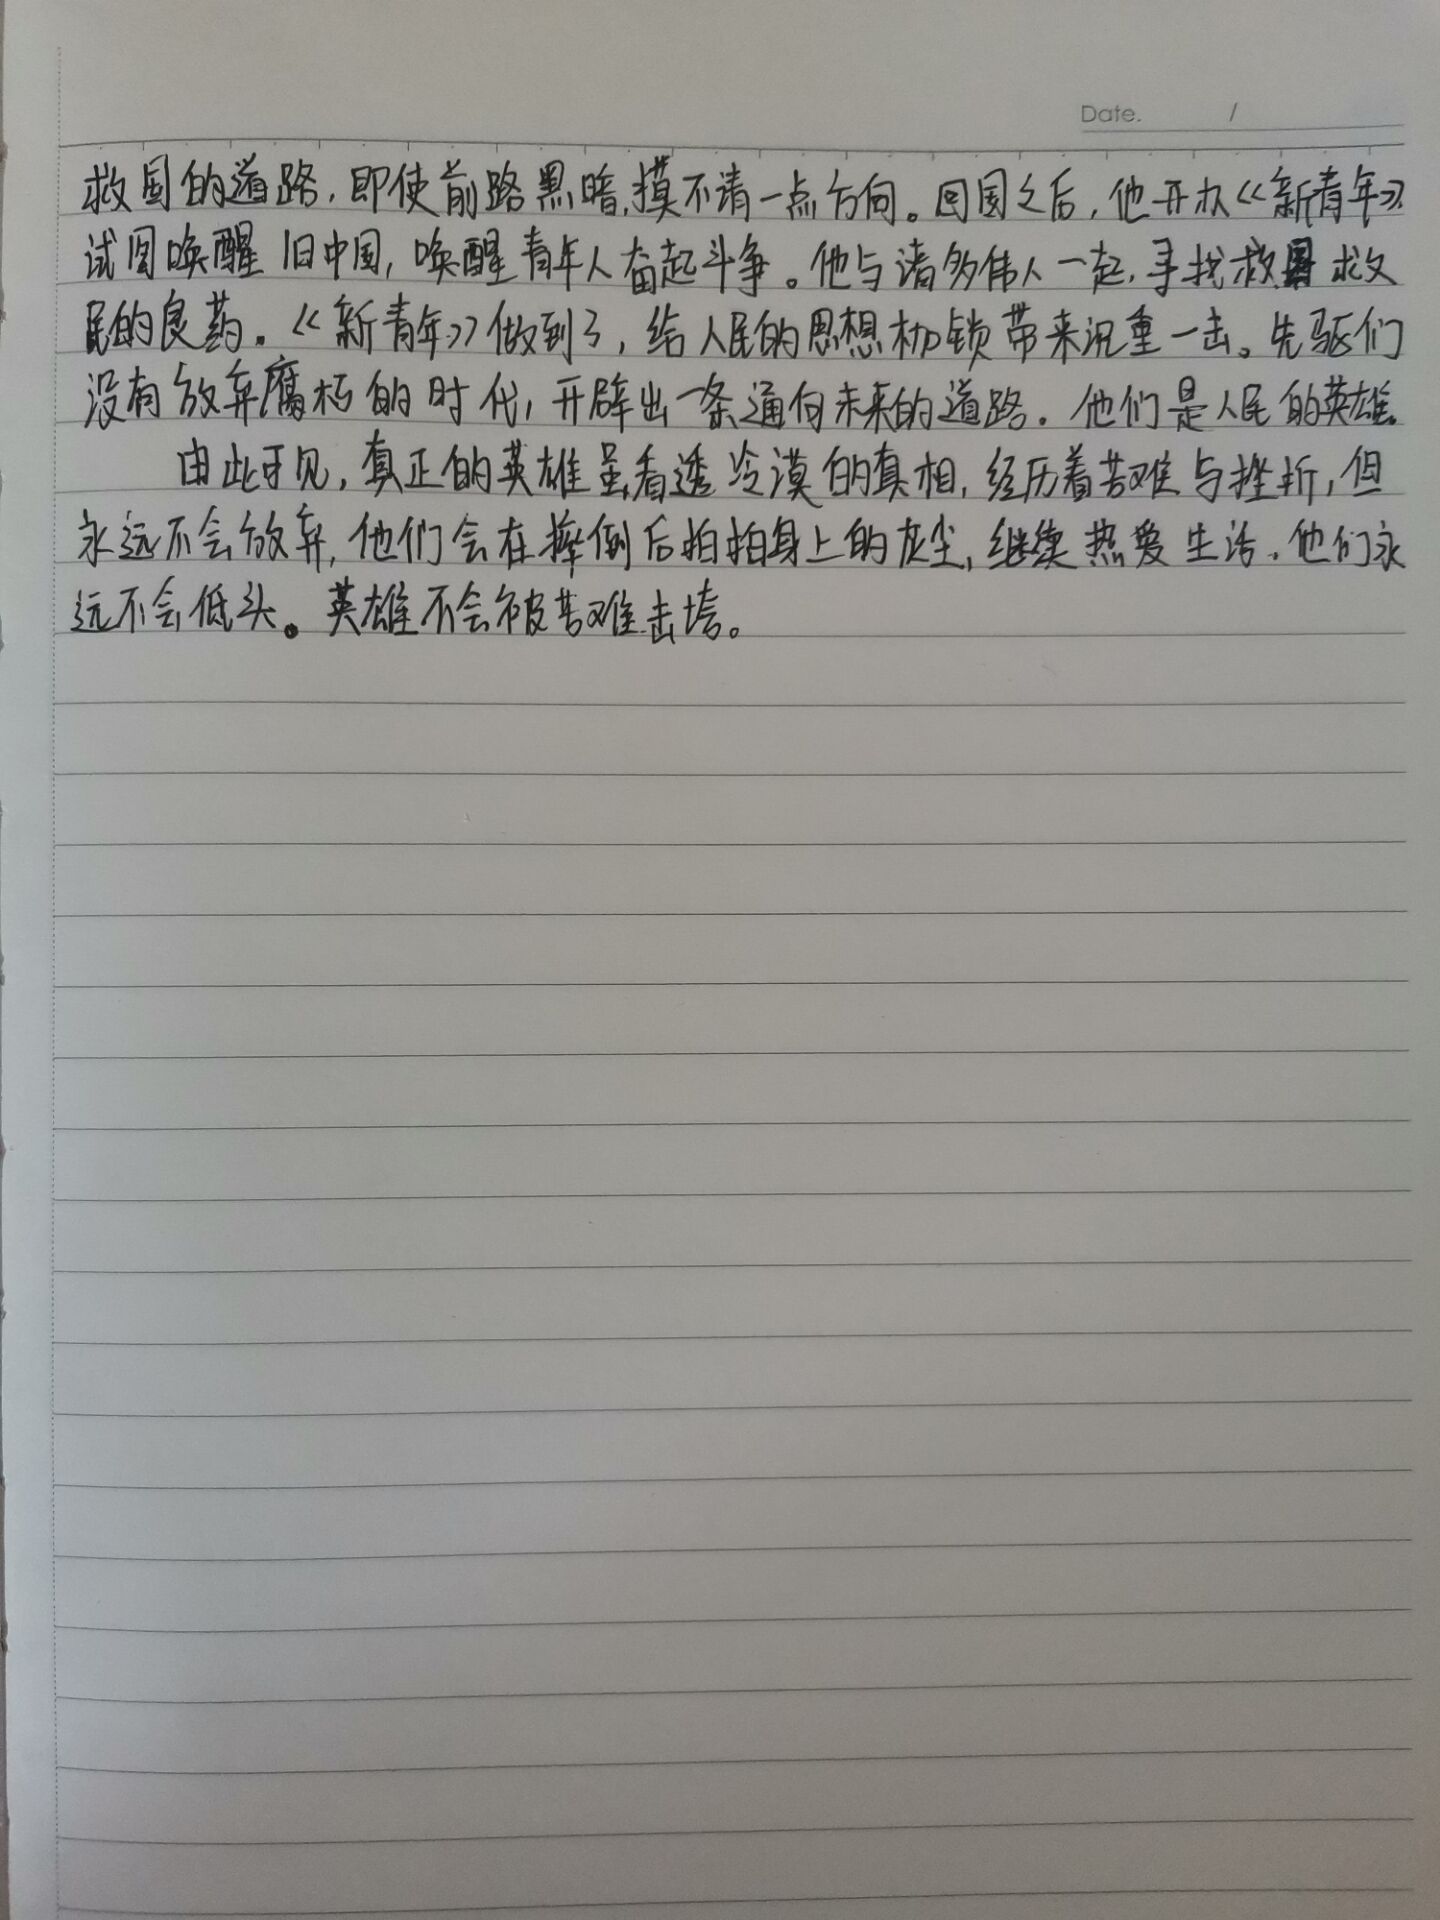 Date. /
救国的道路,即使前路黑暗,摸不请一点方向。回国之后,他开办《新青年》,
试图唤醒旧中国,唤醒青年人奋起斗争。他与诸多伟人一起,寻找救国救
民的良药。《新青年》做到了,给人民的思想枷锁带来沉重一击。先驱们
没有放弃腐朽的时代,开辟出一条通向未来的道路。他们是人民的英雄。
由此可见,真正的英雄虽看透冷漠的真相,经历着苦难与挫折,但
永远不会放弃,他们会在摔倒后拍拍身上的灰尘,继续热爱生活。他们永
远不会低头。英雄不会被苦难击垮。